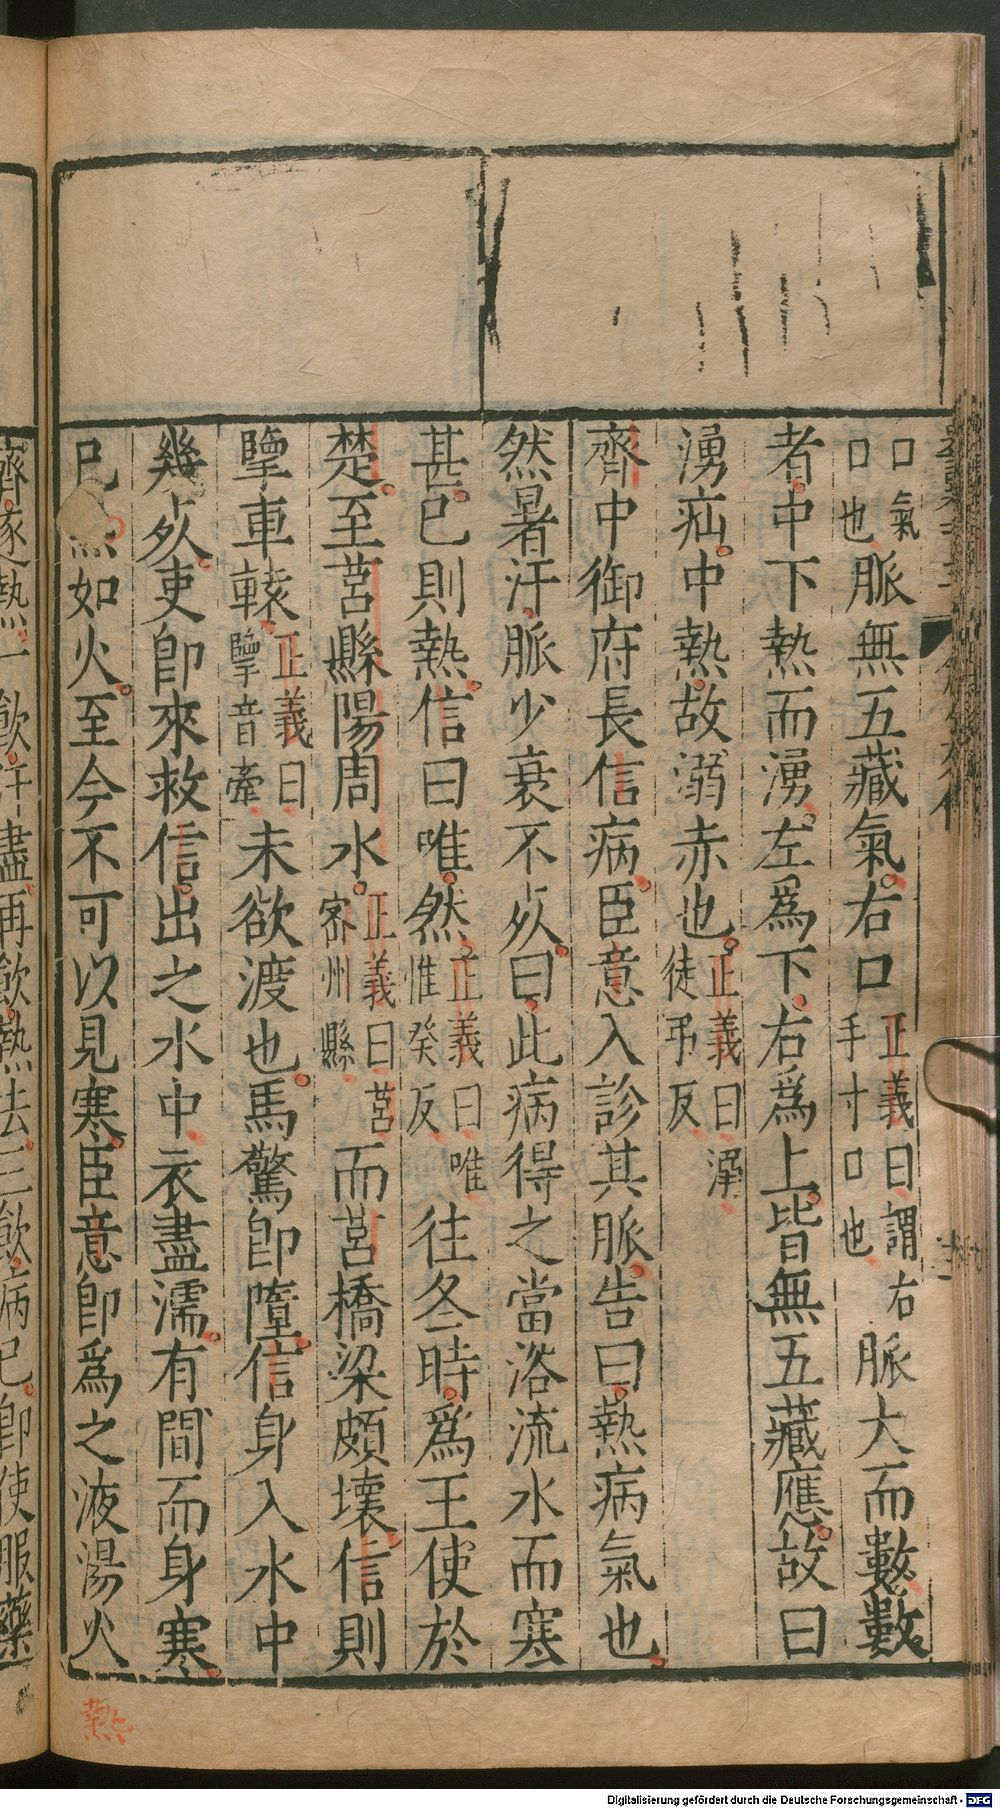 口氣口也脈無五藏氣右口正義曰謂右手寸口也脈大而數數
者中下熱而湧左爲下右爲上皆無五藏應故曰
湧疝中熱故溺赤也正義曰溺徒弔反
齊中御府長信病臣意入診其脈告曰熱病氣也
然暑汗脈少衰不死曰此病得之當浴流水而寒
甚已則熱信曰唯然正義曰唯惟癸反往冬時爲王使於
楚至莒縣陽周水正義曰莒密州縣而莒橋梁頗壞信則
擥車轅正義曰擥音牽未欲渡也馬驚卽墮信身入水中
幾死吏卽來救信出之水中衣盡濡有間而身寒
已熱如火至今不可以見寒臣意卽爲之液湯火
齊逐熱一飲汗盡再飲熱去三飲病已卽使服藥
熱
Digitalisierung gefördert durch die Deutsche Forschungsgemeinschaft - DFG